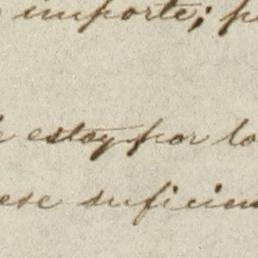 importe; p
estoy por lo
ese suficien